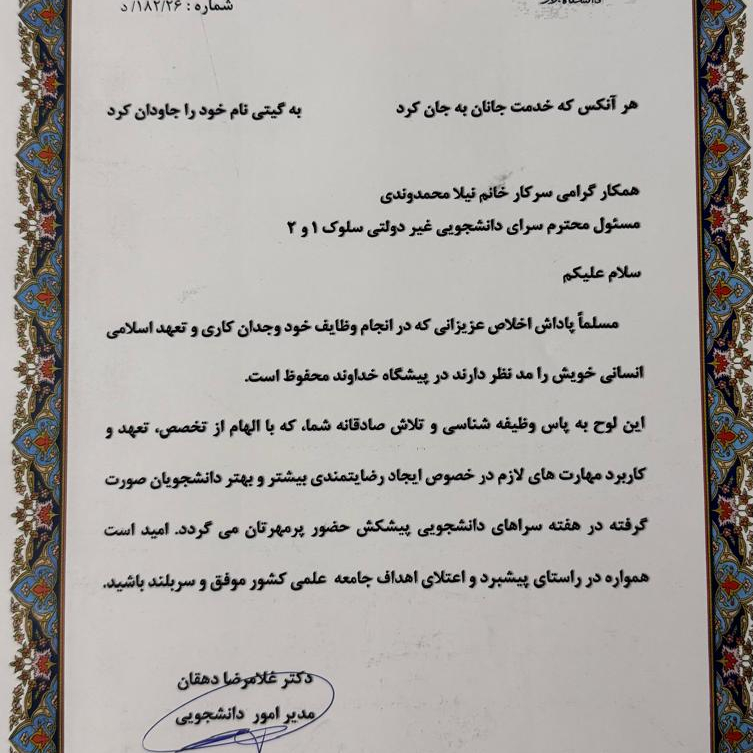 شماره : ۱۸۲/۲۶/ د
هر آنکس که خدمت جانان به جان کرد به گیتی نام خود را جاودان کرد
همکار گرامی سرکار خانم نیلا محمدوندی
مسئول محترم سرای دانشجویی غیر دولتی سلوک ۱ و ۲
سلام علیکم
مسلماً پاداش اخلاص عزیزانی که در انجام وظایف خود وجدان کاری و تعهد اسلامی
انسانی خویش را مد نظر دارند در پیشگاه خداوند محفوظ است.
این لوح به پاس وظیفه شناسی و تلاش صادقانه شما، که با الهام از تخصص، تعهد و
کاربرد مهارت های لازم در خصوص ایجاد رضایتمندی بیشتر و بهتر دانشجویان صورت
گرفته در هفته سراهای دانشجویی پیشکش حضور پرمهرتان می گردد. امید است
همواره در راستای پیشبرد و اعتلای اهداف جامعه علمی کشور موفق و سربلند باشید.
دکتر غلامرضا دهقان
مدیر امور دانشجویی